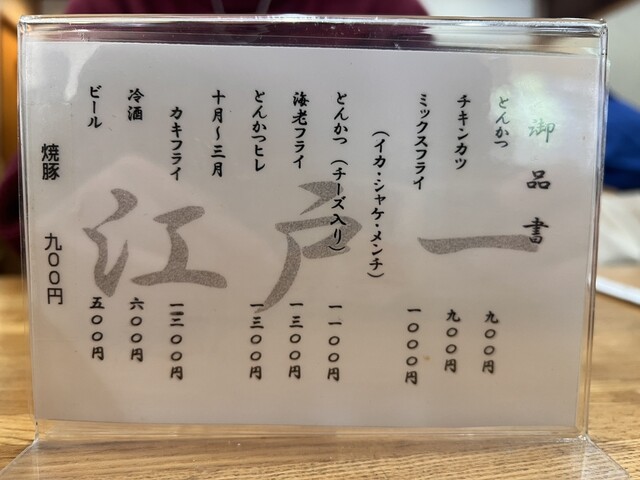 御品書
とんかつ 九〇〇円
チキンカツ 九〇〇円
ミックスフライ 一〇〇〇円
(イカ・シャケ・メンチ)
とんかつ(チーズ入り) 一一〇〇円
海老フライ 一三〇〇円
とんかつヒレ 一三〇〇円
十月〜三月
カキフライ 一三〇〇円
冷酒 六〇〇円
ビール 五〇〇円
焼豚 九〇〇円
江戸一